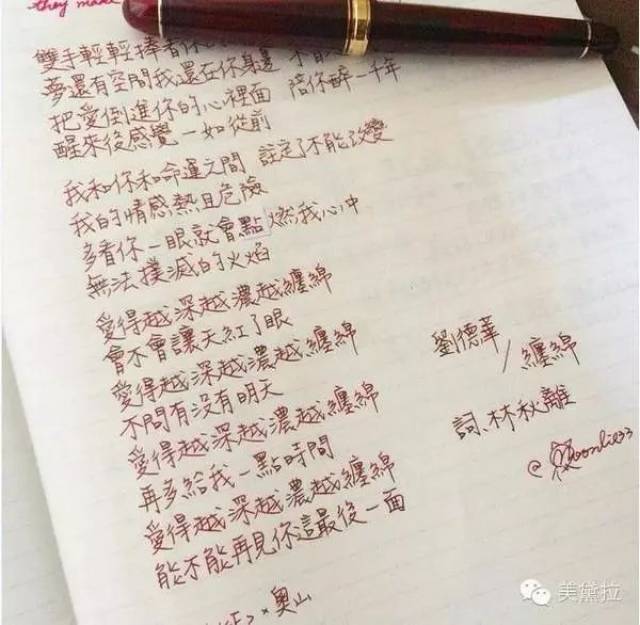 they make
雙手輕輕捧著你
夢還有空間我還在你身邊
把愛倒進你的心裡面 陪你醉一千年
醒來後感覺一如從前
我和你和命運之間 註定了不能改變
我的情感熱且危險
多看你一眼就會點燃我心中
無法撲滅的火焰
愛得越深越濃越纏綿
會不會讓天紅了眼
愛得越深越濃越纏綿
不問有沒有明天
愛得越深越濃越纏綿
再多給我一點時間
愛得越深越濃越纏綿
能不能再見你這最後一面
劉德華/纏綿
詞、林秋離
@Moonlie33
×奧山
美黛拉